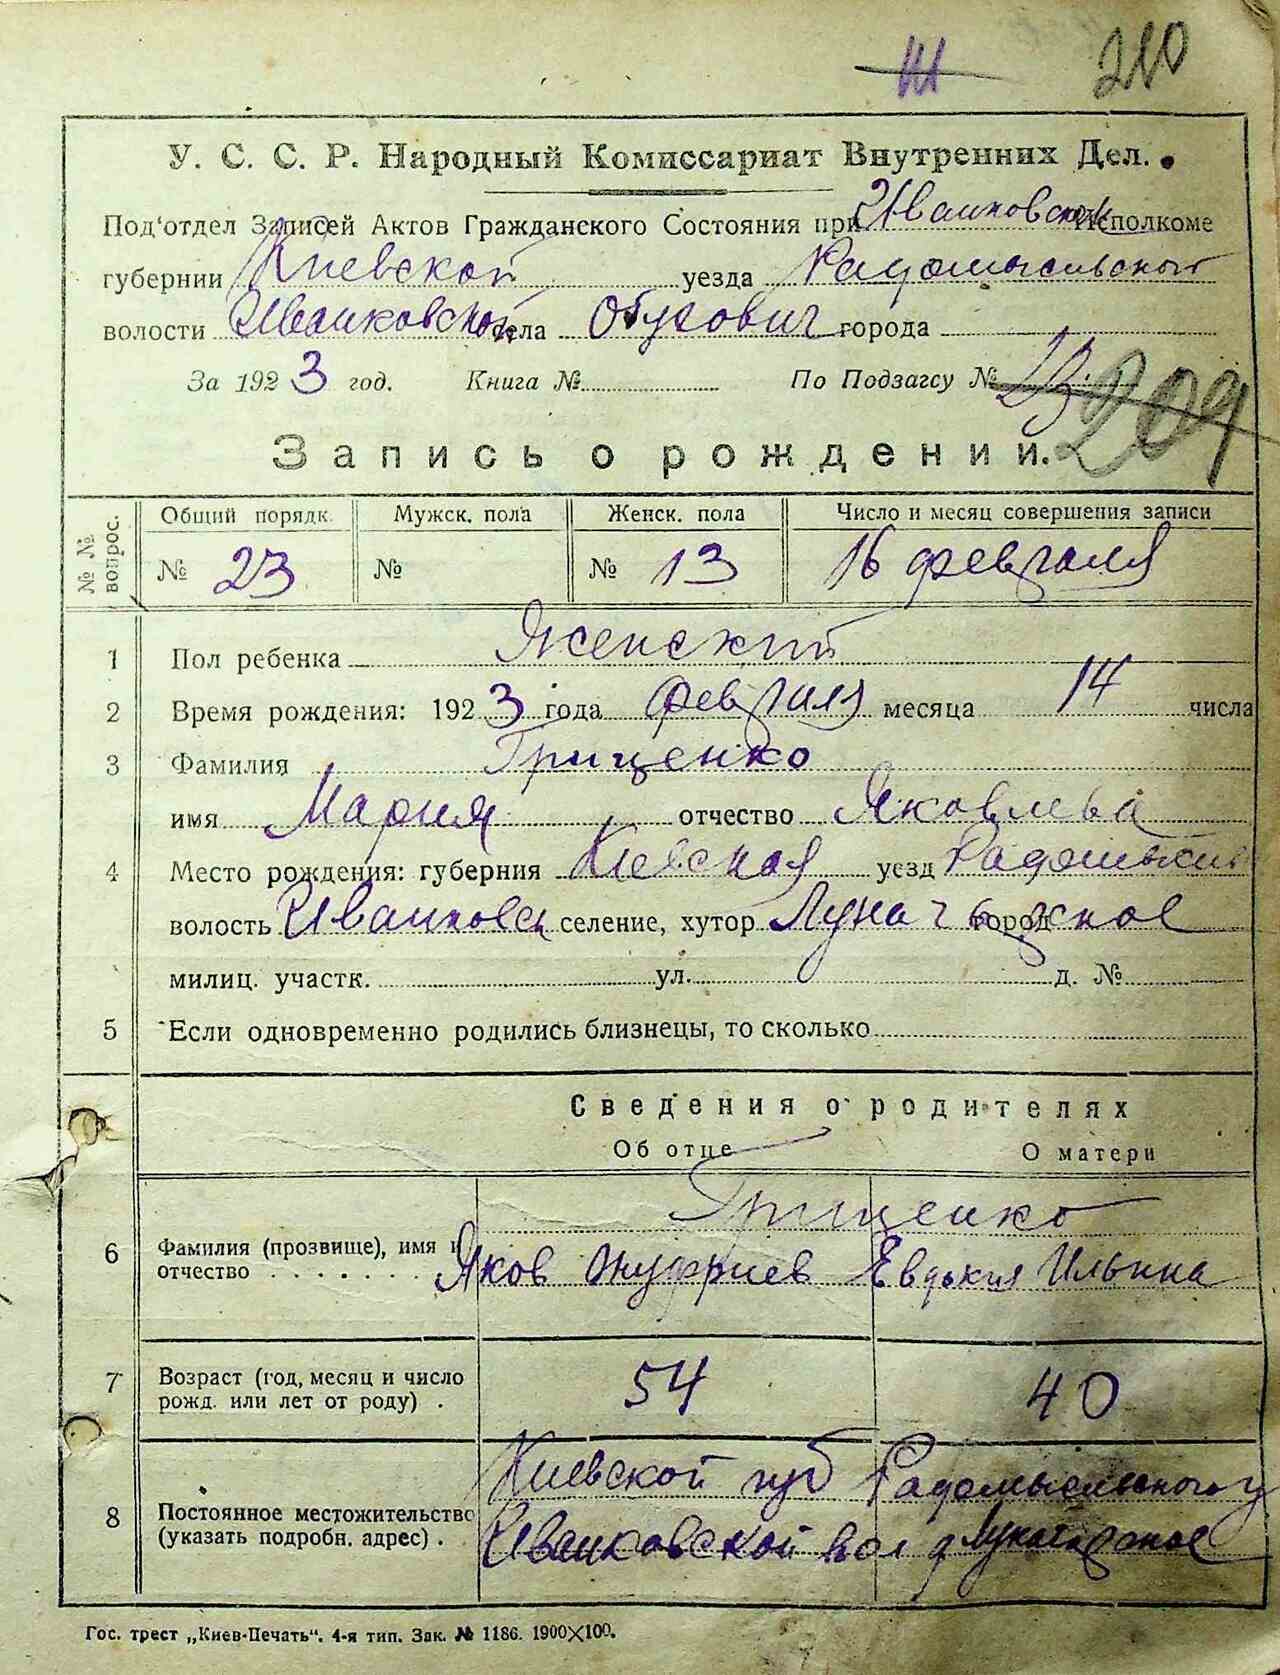 Ш 210
У. С. С. Р. Народный Комиссариат Внутренних Дел.
Под'отдел Записей Актов Гражданского Состояния при Иванковском Исполкоме
губернии Киевской уезда Радомысльского
волости Иванковской села Обухович города
За 1923 год. Книга № По Подзагсу № 23 209
Запись о рождении.
№ № вопрос. Общий порядк. Мужск. пола Женск. пола Число и месяц совершения записи
№ 23 № № 13 16 февраля
1 Пол ребенка Женский
2 Время рождения: 1923 года февраля месяца 14 числа
3 Фамилия Гриценко
имя Мария отчество Яковлева
4 Место рождения: губерния Киевская уезд Радомысль
волость Иванковск селение, хутор город
милиц. участк. ул. д. №
5 Если одновременно родились близнецы, то сколько
Сведения о родителях
Об отце О матери
Гриценко
6 Фамилия (прозвище), имя и
отчество . . . . . . . Яков Онуфриев Евдокия Ильина
7 Возраст (год, месяц и число
рожд. или лет от роду) . 54 40
Киевской губ Радомысльского у
8 Постоянное местожительство
(указать подробн. адрес) . Иванковской вол д
Гос. трест „Киев-Печать". 4-я тип. Зак. № 1186. 1900×100.